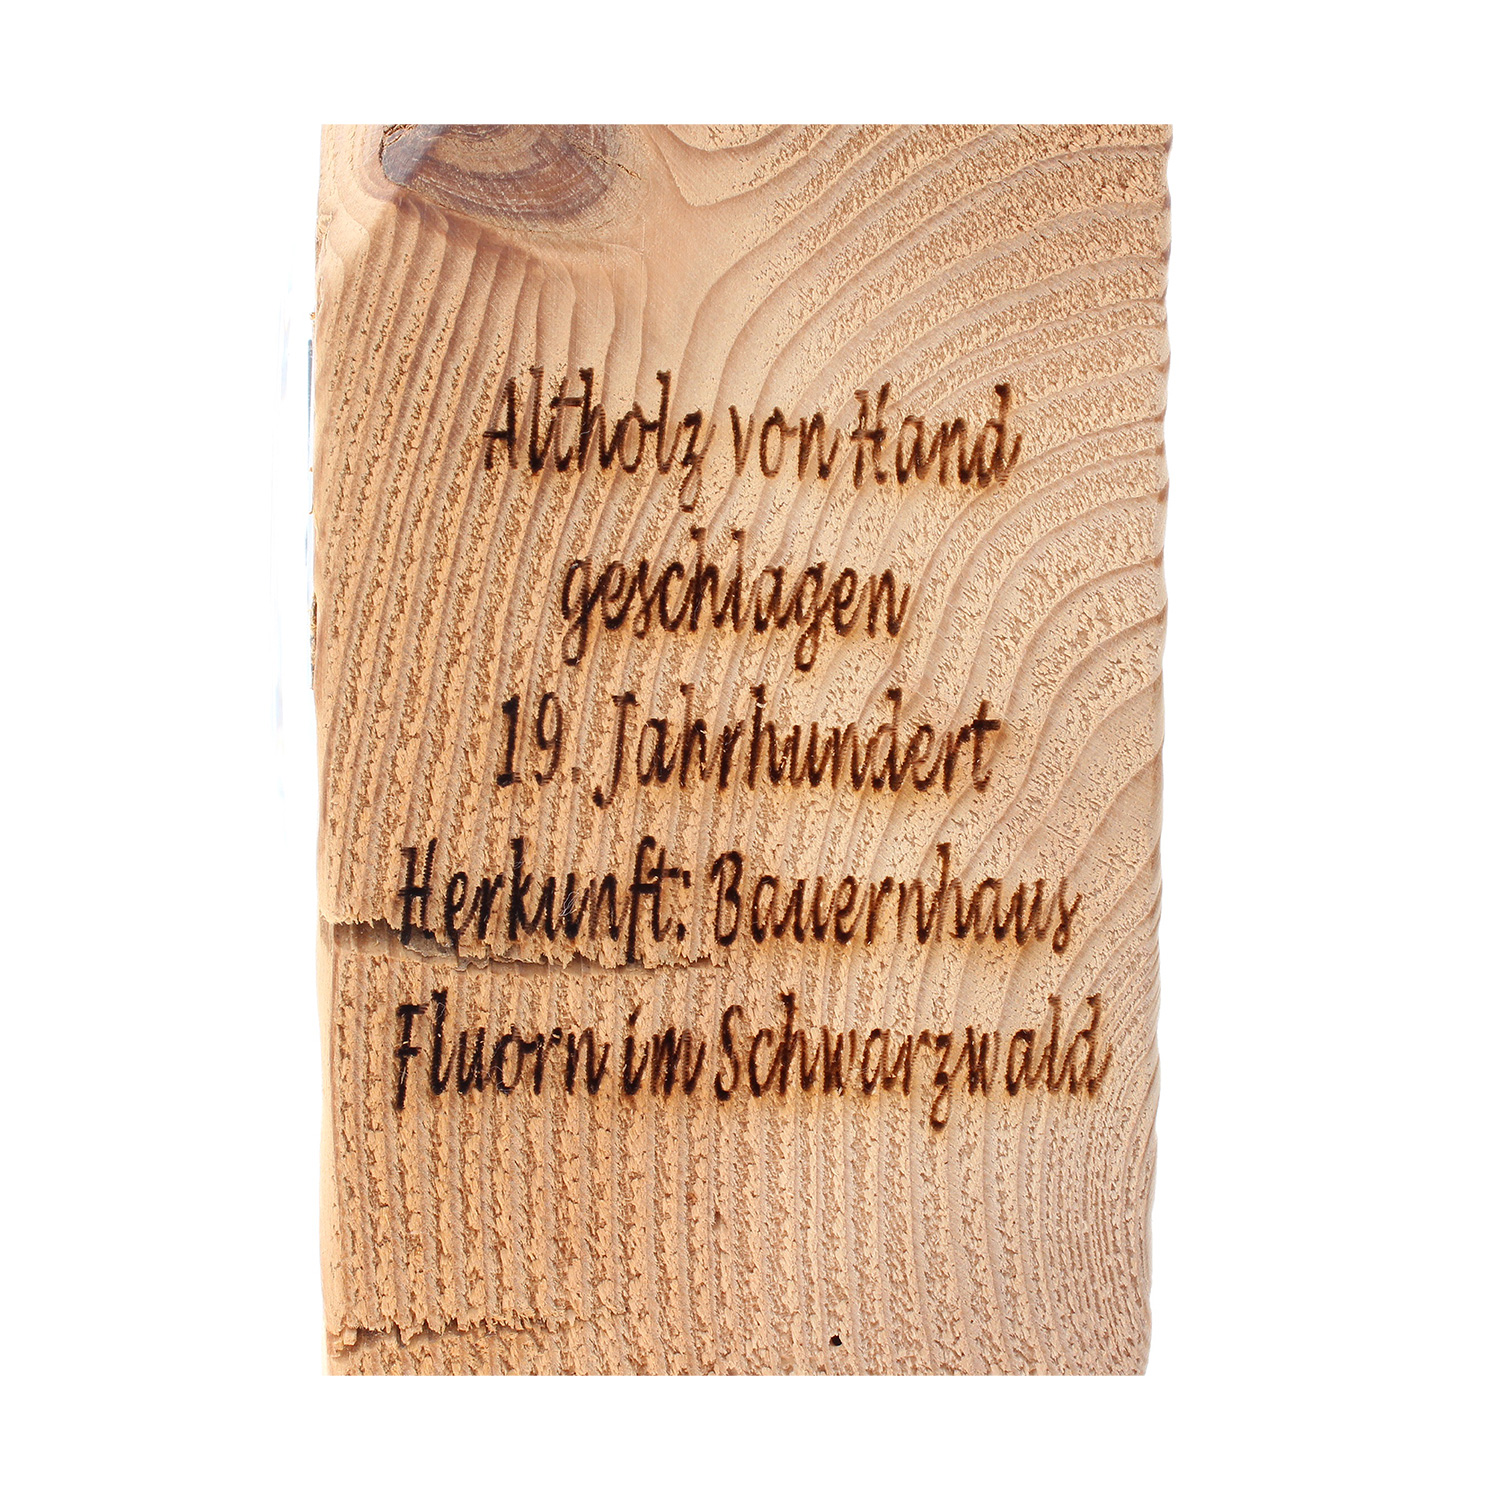 Altholz von Hand
geschlagen
19. Jahrhundert
Herkunft: Bauernhaus
Fluorn im Schwarzwald